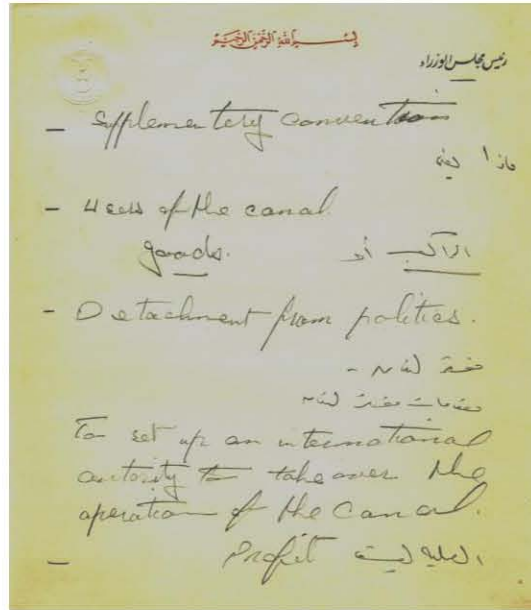 بسم الله الرحمن الرحيم
رئيس مجلس الوزراء
- Supplementery convention
ماذا يعنى
- Users of the canal
goods. المراكب أو
- Detachment from politics.
To set up an international
autority to take over the
operation of the canal.
- Profit العملية ليست